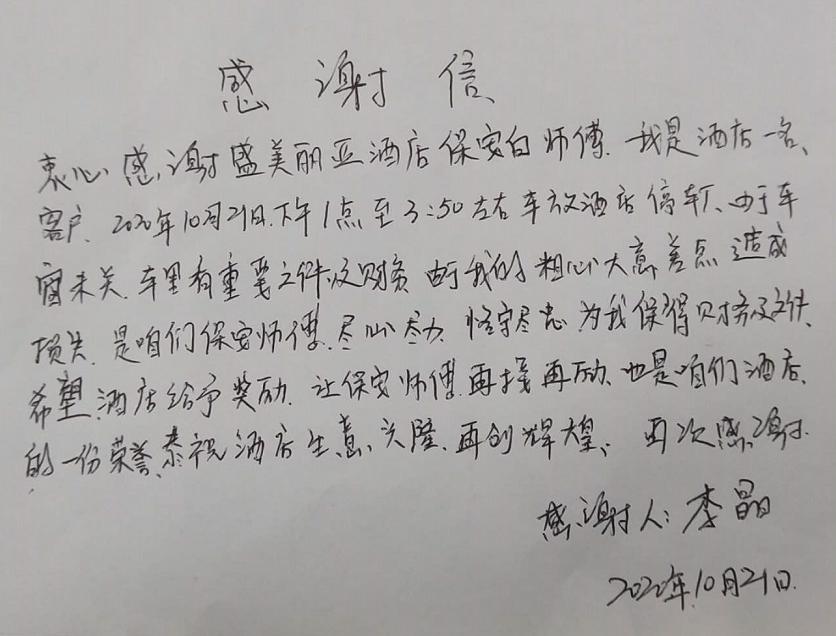 感谢信
衷心感谢盛美丽亚酒店保安白师傅.我是酒店一名、
客户.2020年10月21日.下午1点至3:50左右车放酒店停车厂、由于车
窗未关.车里有重要文件及财务 由于我的粗心大意差点造成
损失.是咱们保安师傅.尽心尽力 恪守尽忠 为我保得财务及文件.
希望酒店给予奖励.让保安师傅再接再励.也是咱们酒店.
的一份荣誉、恭祝酒店生意兴隆.再创辉煌、再次感谢.
感谢人:李晶
2020年.10月21日.